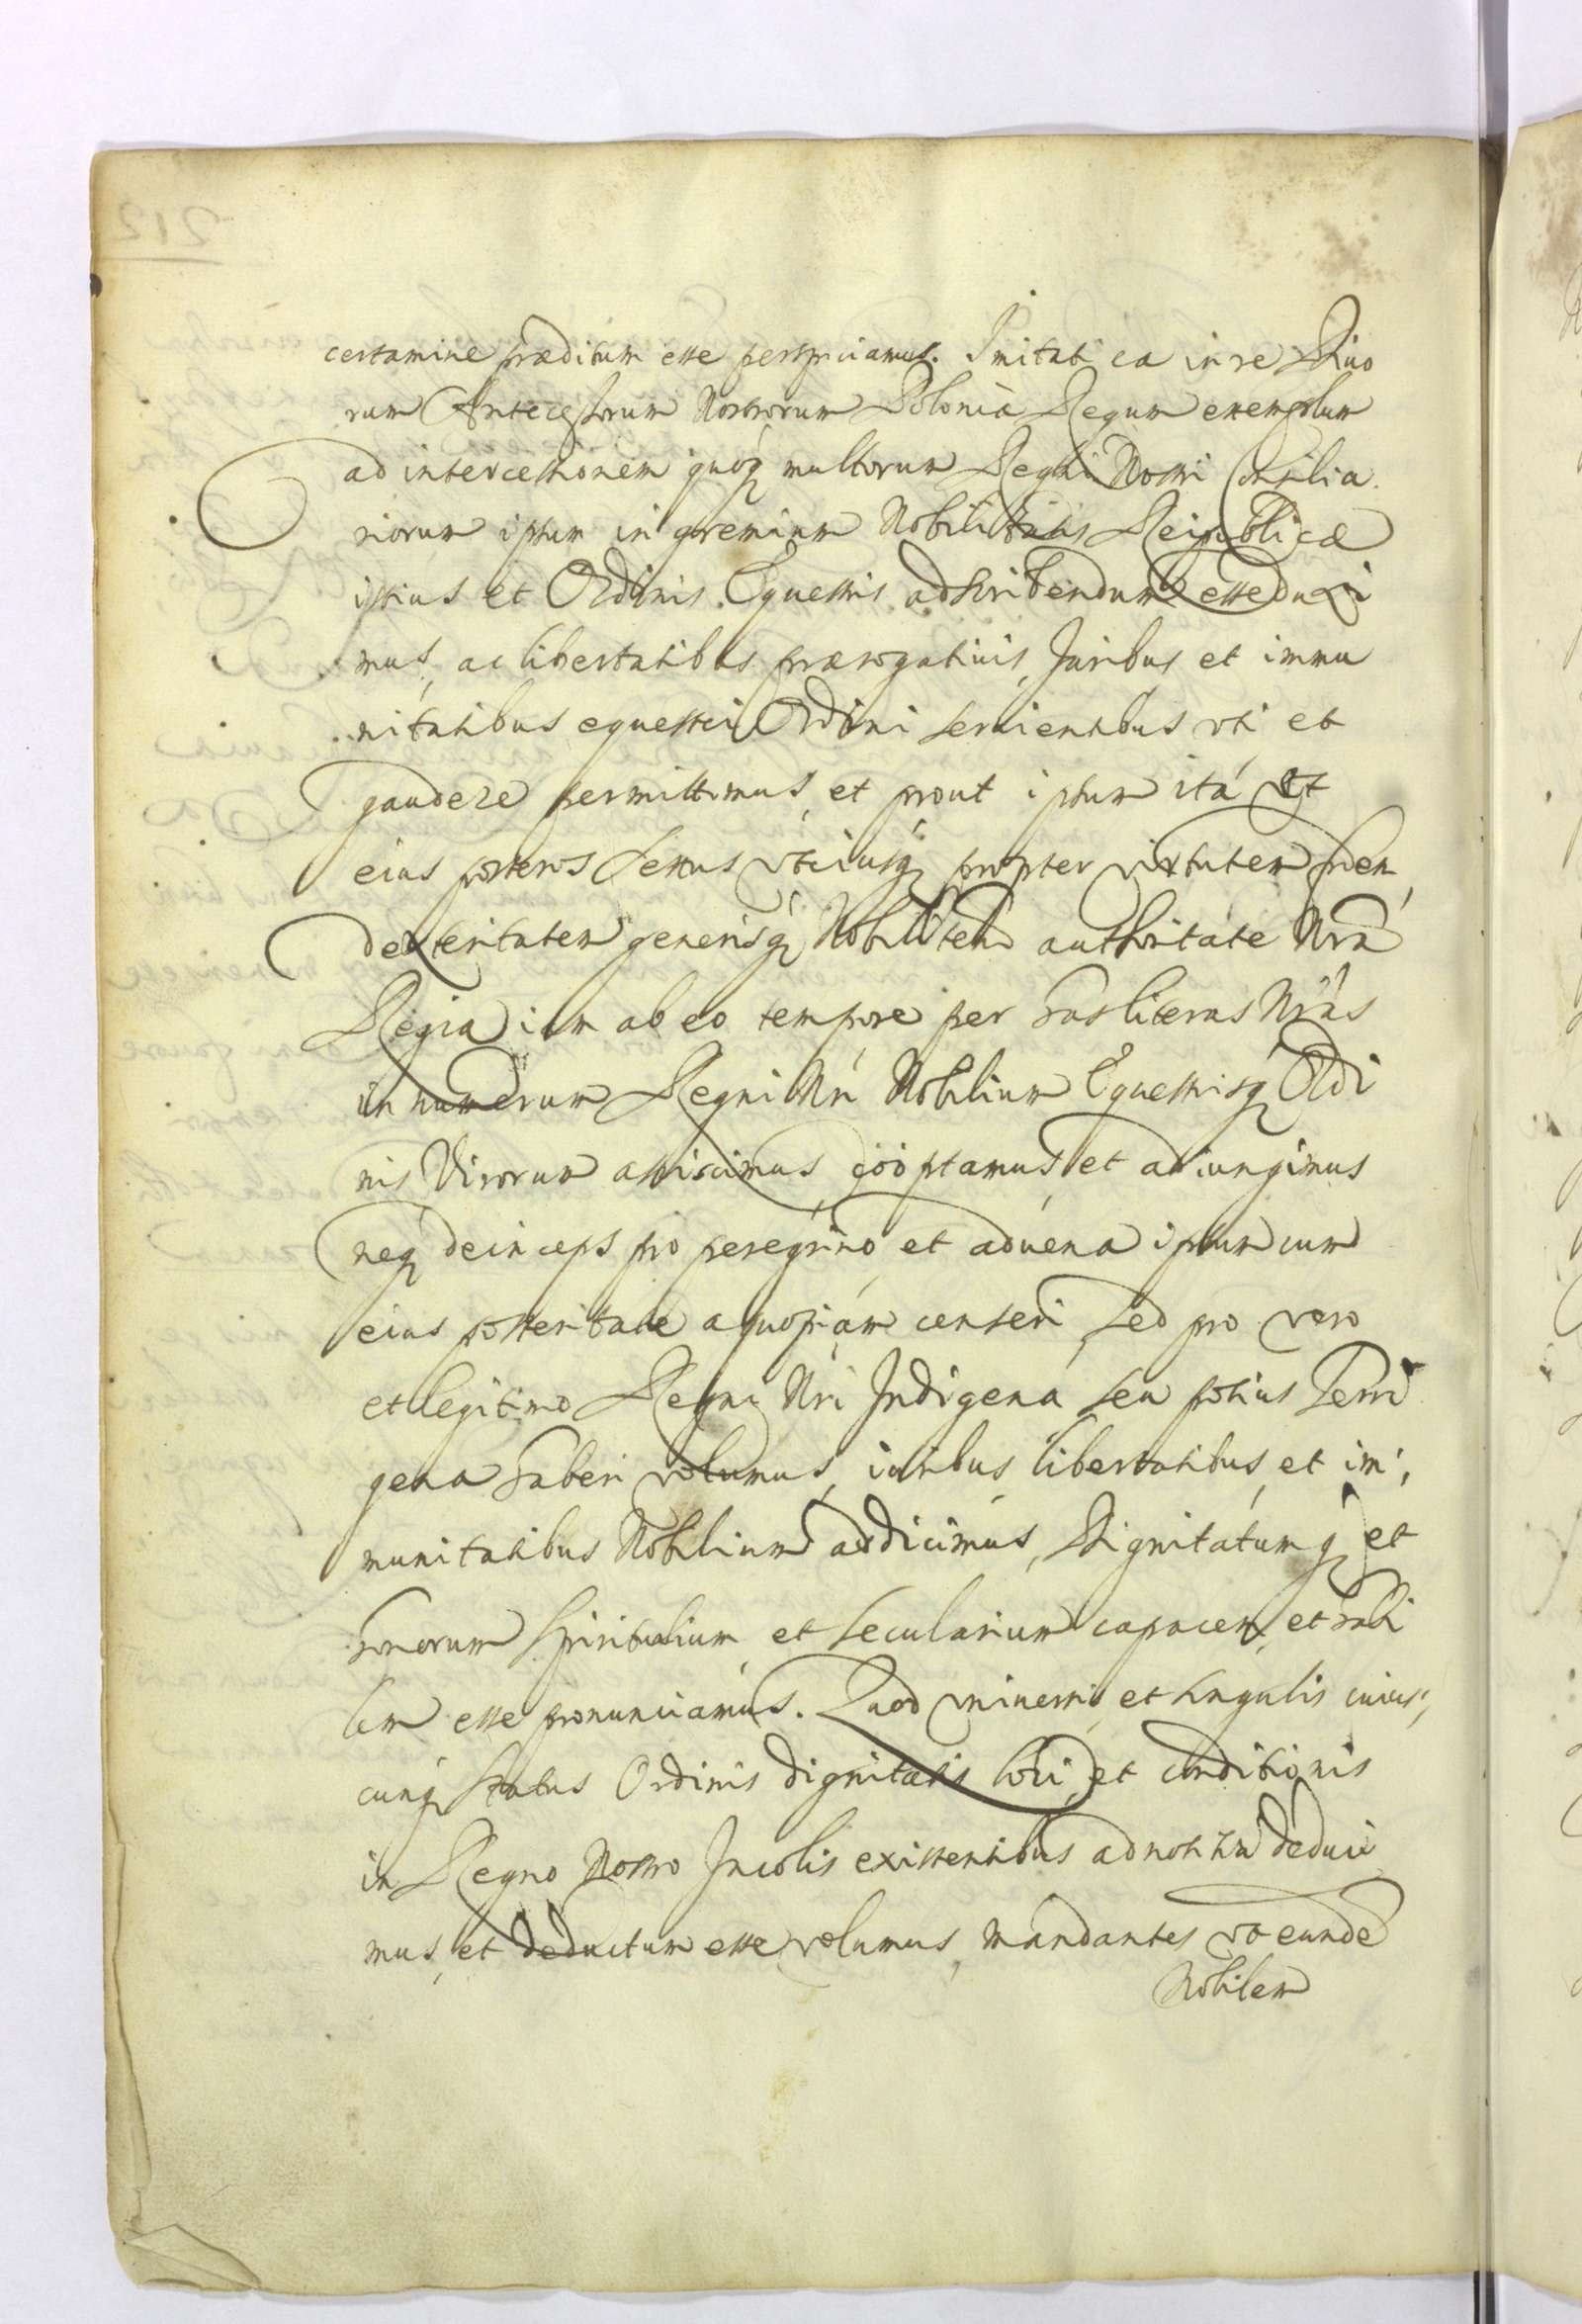 certamine præditum esse perspiciamus. Imitati ea in re Diuo
rum Antecessorum Nostrorum Poloniæ Regum exemplum
ad intercessionem quoq multorum Regni Nostri Consilia
riorum ipsum in gremium Nobilitatis Reipublicæ
istius et Ordinis Equestris adscribendum esse duxi
mus, ac libertatibus prærogatiuis, Juribus et immu
nitatibus equestri Ordini seruientibus vti et
gaudere permittimus, et prout ipsum itá et
eius posteros sexus vtriusq propter virtutem
dexteritatem generisq Nobilitatem authoritate Nrá
Regia iam ab eo tempore per has literas Nrás
in numerum Regni Nri Nobilium Equestrisq Ordi
nis Virorum assciscimus cooptamus et adiungimus
neq deinceps pro peregrino et aduena ipsum cum
eius posteritate a quopiam censeri, sed pro vero
et legitimo Regni Nri Indigena seu potius Terri
gena haberi volumus, iuribus libertatibus, et im,
munitatibus Nobilium addicimus, Dignitatumq et
honorum spiritualium et secularium capacem, et habi
lem esse pronunciamus. Quod vniuersis, et singulis cuius,
cunq status Ordinis dignitatis loci, et conditionis
in Regno Nostro Incolis existentibus ad notitiã deduci
mus, et deductum esse volumus, mandantes vt eundẽ
Nobilem
212